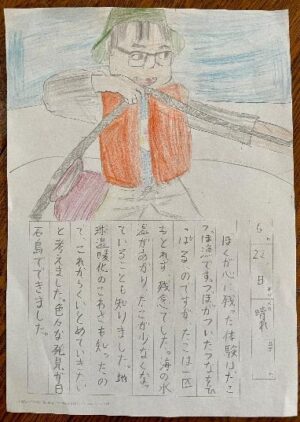 6 22 日
晴れ
ぼくが心に残った体験はたこ
つぼ漁です。つぼがついたつなをひ
っぱるのですがたこは一匹
もとれず残念でした。海の水
温があがりたこが少なくなっ
ていることも知りました。地
球温暖化のこわさも知ったの
で、これからくいとめていきたい
と考えました。色々な発見が日
間島でできました。